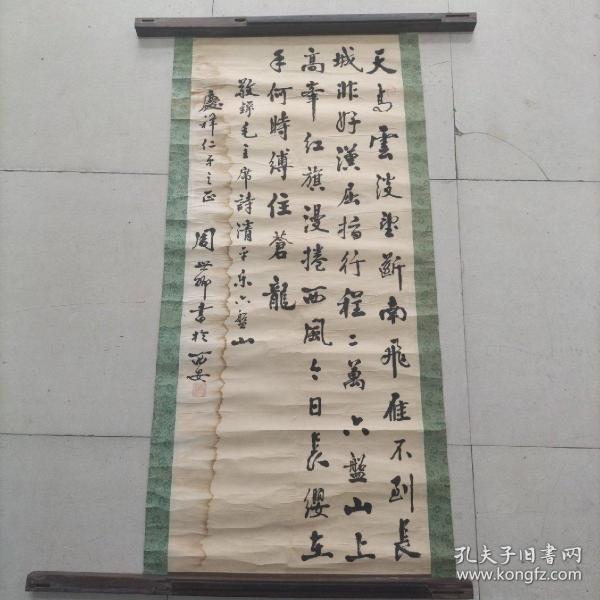 天高雲淡望斷南飛雁不到長
城非好漢屈指行程二萬六盤山上
高峯紅旗漫捲西風今日長纓在
手何時縛住蒼龍
敬錄毛主席詩清平乐六盤山
慶祥仁弟之正
周世卿書於西安
孔夫子旧书网
www.kongfz.com